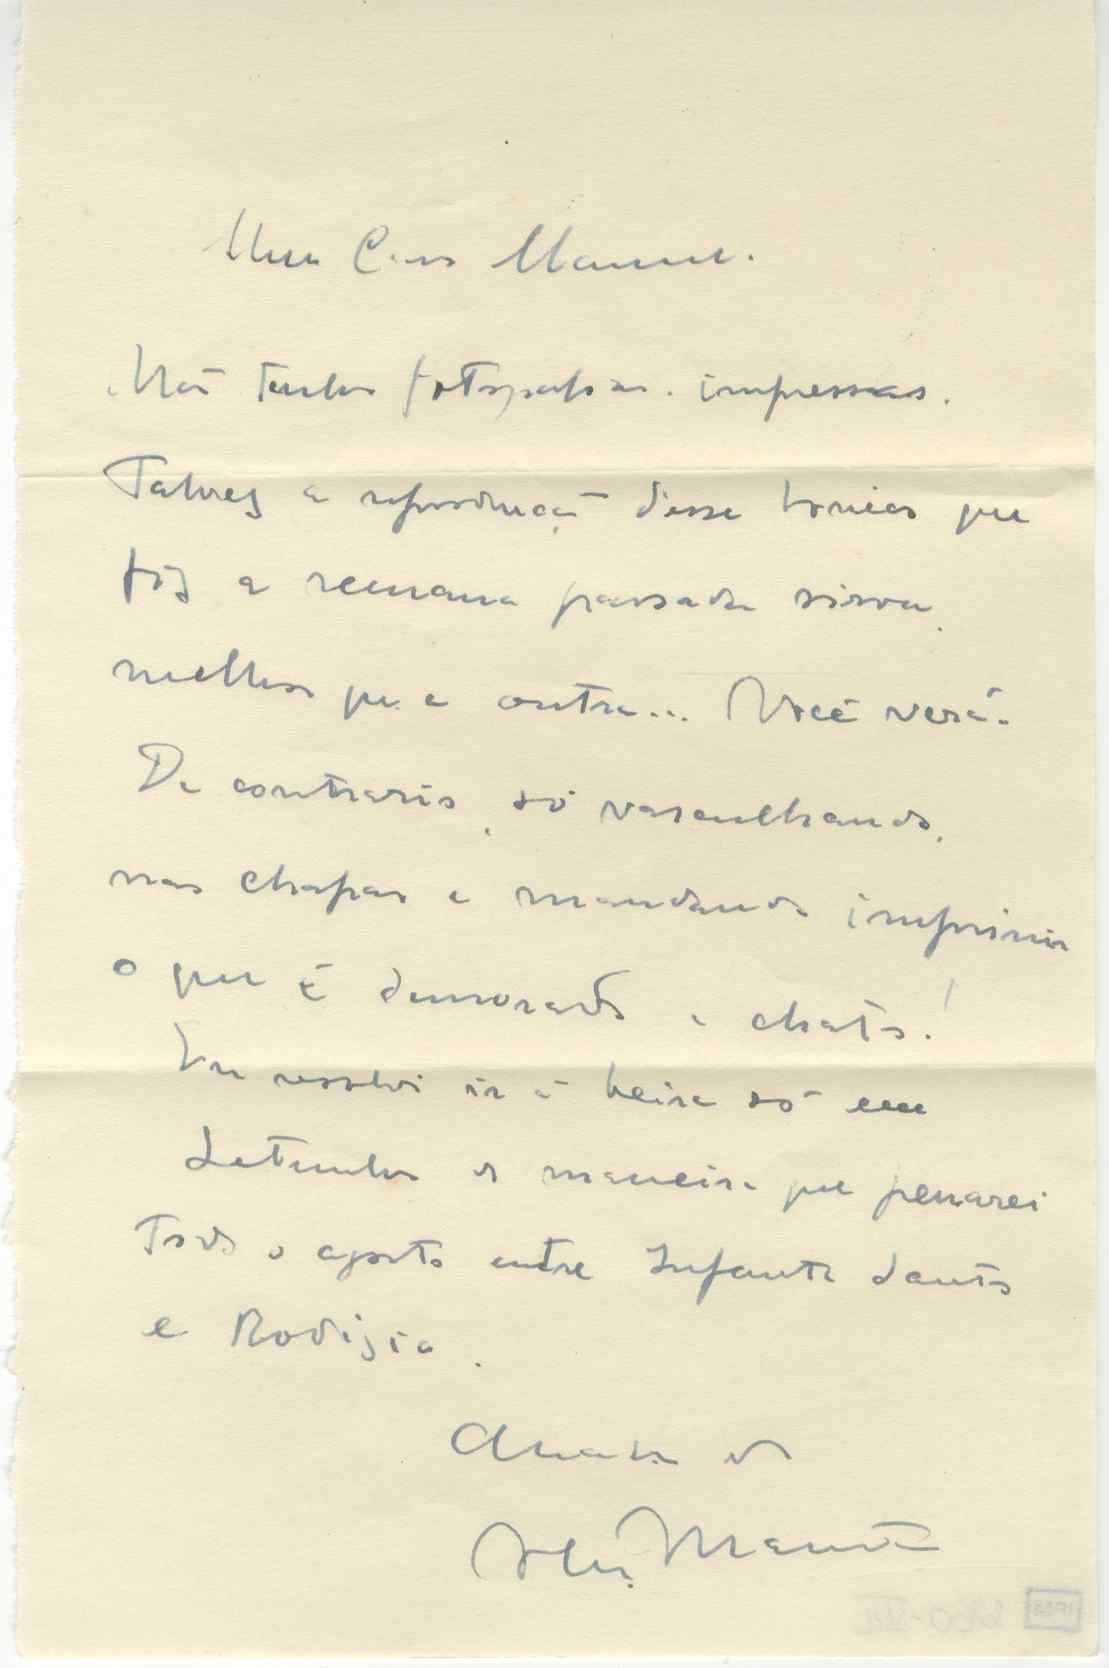 Meu Caro Manuel.
Não tenho fotografias impressas.
Talvez a reprodução desse bronico que
fiz a semana passada sirva
melhor que a outra... Você verá.
De contrario, só vasculhando,
nas chapas e mandando imprimir
o que é demorado e chato!
Eu resolvi ir á beira só em
Setembro de maneira que penarei
Todo o agosto entre Infante Santo
e Rodizio.
Abraço do